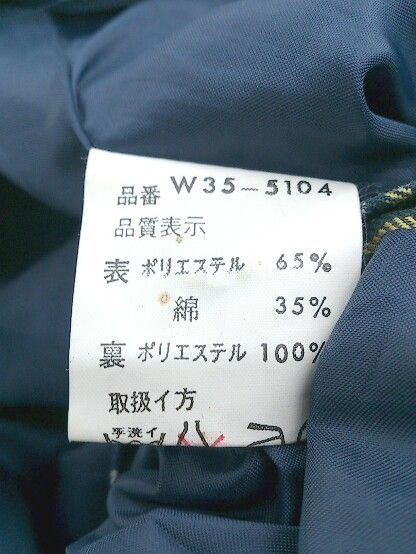 品番 W35-5104
品質表示
表 ポリエステル 65%
綿 35%
裏 ポリエステル 100%
取扱イ方
手洗イ